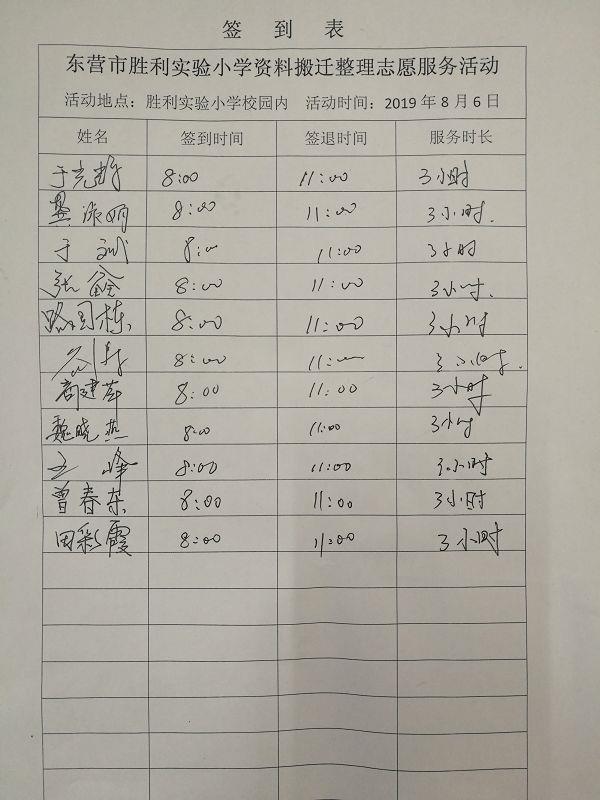 签 到 表
东营市胜利实验小学资料搬迁整理志愿服务活动
活动地点：胜利实验小学校园内 活动时间：2019年8月6日
姓名 签到时间 签退时间 服务时长
于 8:00 11:00 3小时
8:00 11:00 3小时.
于 斌 8:00 11:00 3小时
张鑫 8:00 11:00 3小时.
路国栋 8:00 11:00 3小时
刘 8:00 11:00 3小时.
郝建华 8:00 11:00 3小时
魏晓燕 8:00 11:00 3小时
王 峰 8:00 11:00 3小时
曾春东 8:00 11:00 3小时
田彩霞 8:00 11:00 3小时